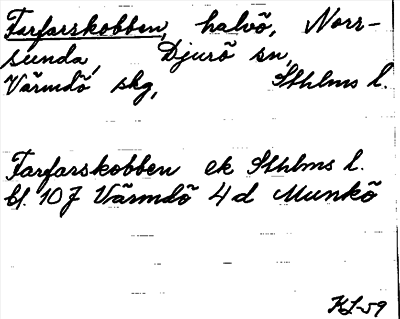 Farfarskobben, halvö, Norr-
sunda, Djurö sn,
Värmdö skg, Sthlms l.
Farfarskobben ek Sthlms l.
bl. 10J Värmdö 4d Munkö
KL-59